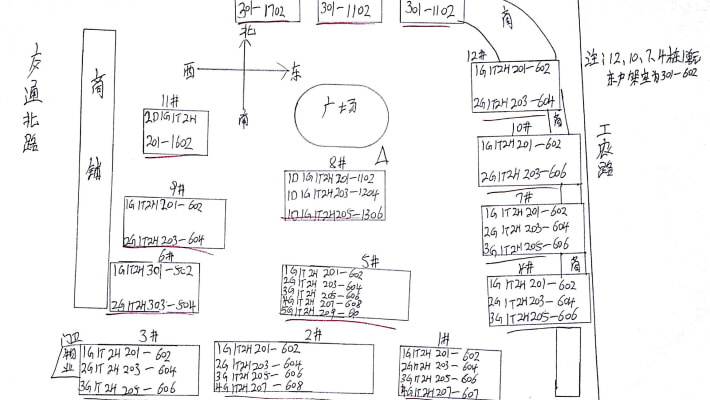 301-1702
301-1102
301-1102
商
北
西
东
南
广场
交通北路
商铺
工农路
注:12、10、7、4栋1单元
东户架空为301-602
12#
1G1T2H 201-602
2G1T2H 203-604
商
11#
2D1G1T2H
201-1602
10#
1G1T2H 201-602
2G1T2H 203-606
8#
1D1G1T2H 201-1102
1D1G1T2H 203-1204
1D1G1T2H 205-1306
9#
1G1T2H 201-602
2G1T2H 203-604
7#
1G1T2H 201-602
2G1T2H 203-604
3G1T2H 205-606
商
6#
1G1T2H 301-502
2G1T2H 303-504
5#
1G1T2H 201-602
2G1T2H 203-604
3G1T2H 205-606
4G1T2H 207-608
5G1T2H 209-60
4#
1G1T2H 201-602
2G1T2H 203-604
3G1T2H 205-606
物业
3#
1G1T2H 201-602
2G1T2H 203-604
3G1T2H 205-606
2#
1G1T2H 201-602
2G1T2H 203-604
3G1T2H 205-606
4G1T2H 207-608
1#
1G1T2H 201-602
2G1T2H 203-604
3G1T2H 205-606
4G1T2H 207-607